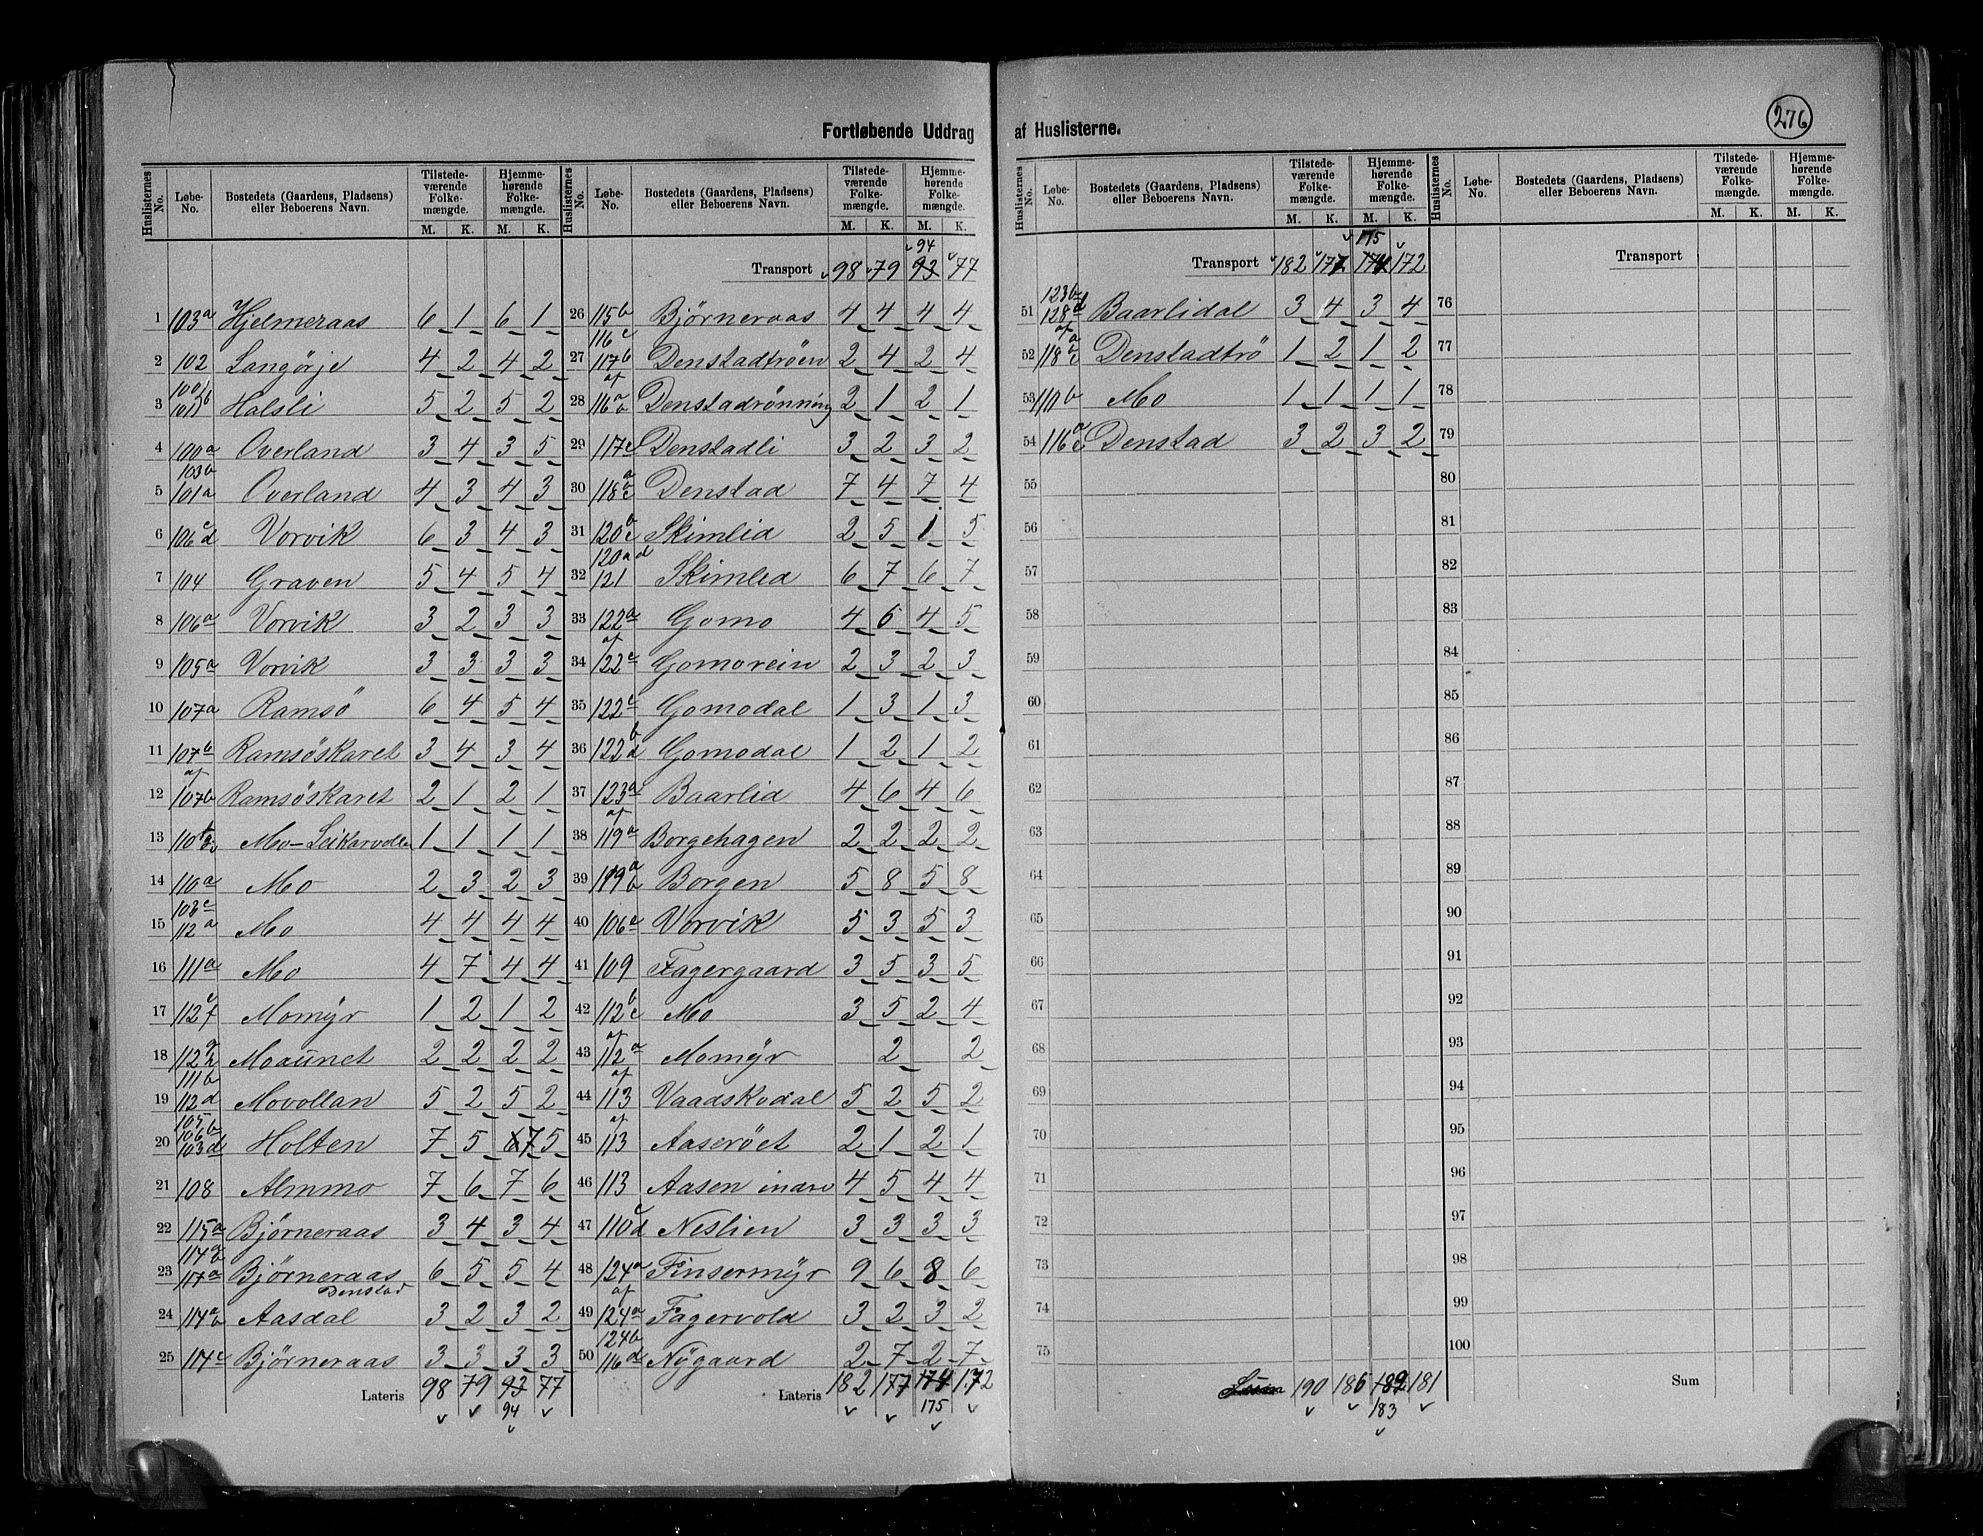 276
Fortløbende Uddrag af Huslisterne.
Huslisternes No. Løbe-No. Bostedets (Gaardens, Pladsens) eller Beboerens Navn. Tilstedeværende Folkemængde. M. K. Hjemmehørende Folkemængde. M. K.
1 103a Hjelmeraas 6 1 6 1
2 102 Langørje 4 2 4 2
3 100/101 b Halsli 5 2 5 2
4 100a Overland 3 4 3 5
5 103b 101a Overland 4 3 4 3
6 106 c d Vorvik 6 3 4 3
7 104 Graven 5 4 5 4
8 106a Vorvik 3 2 3 3
9 105a Vorvik 3 3 3 3
10 107a Ramsö 6 4 5 4
11 107b Ramsöskaret 3 4 3 4
12 af 107b Ramsöskaret 2 1 2 1
13 110 Mo-Leikarvollen 1 1 1 1
14 110a Mo 2 3 2 3
15 108c 112a Mo 4 4 4 4
16 111a Mo 4 7 4 4
17 112 c f Momyr 1 2 1 2
18 112 g h Moaunet 2 2 2 2
19 111b 112d Movollan 5 2 5 2
20 105b 106 103d Holten 7 5 6 7 5
21 108 Almmo 7 6 7 6
22 115a Bjørneraas 3 4 3 4
23 114 b 117a Bjørneraas Denstad 6 5 5 4
24 114 a b Aasdal 3 2 3 2
25 114c Bjørneraas 3 3 3 3
Lateris 98 79 93 77
94
Huslisternes No. Løbe-No. Bostedets (Gaardens, Pladsens) eller Beboerens Navn. Tilstedeværende Folkemængde. M. K. Hjemmehørende Folkemængde. M. K.
94
Transport 98 79 93 77
26 115b Bjørneraas 4 4 4 4
27 116c 117b Denstadtrøen 2 4 2 4
28 af 116 a b Denstadrönning 2 1 2 1
29 117c Denstadli 3 2 3 2
30 118 a b c Denstad 7 4 7 4
31 120 b c Skimlid 2 5 1 5
32 120 a d 121 Skimlid 6 7 6 7
33 122a Gomo 4 6 4 5
34 af 122c Gomorein 2 3 2 3
35 122c Gomodal 1 3 1 3
36 122 b d Gomodal 1 2 1 2
37 123a Baarlid 4 6 4 6
38 af 119a Borgehagen 2 2 2 2
39 119 a b Borgen 5 8 5 8
40 106e Vorvik 5 3 5 3
41 109 Fagergaard 3 5 3 5
42 112 b c Mo 3 5 2 4
43 af 112a Momyr 2 2
44 af 113 Vaadskodal 5 2 5 2
45 af 113 Aaserøet 2 1 2 1
46 113 Aasen indre 4 5 4 4
47 110 c d Neslien 3 3 3 3
48 124a Finsermyr 9 6 8 6
49 af 124a Fagervold 3 2 3 2
50 124b 116d Nygaard 2 7 2 7
Lateris 182 177 174 172
175
Huslisternes No. Løbe-No. Bostedets (Gaardens, Pladsens) eller Beboerens Navn. Tilstedeværende Folkemængde. M. K. Hjemmehørende Folkemængde. M. K.
175
Transport 182 177 174 172
51 123b 128d Baarlidal 3 4 3 4
52 af 118 a c Denstadtrö 1 2 1 2
53 110b Mo 1 1 1 1
54 116 a c Denstad 3 2 3 2
55
56
57
58
59
60
61
62
63
64
65
66
67
68
69
70
71
72
73
74
75
190 186 182 181
183
Huslisternes No. Løbe-No. Bostedets (Gaardens, Pladsens) eller Beboerens Navn. Tilstedeværende Folkemængde. M. K. Hjemmehørende Folkemængde. M. K.
Transport
76
77
78
79
80
81
82
83
84
85
86
87
88
89
90
91
92
93
94
95
96
97
98
99
100
Sum